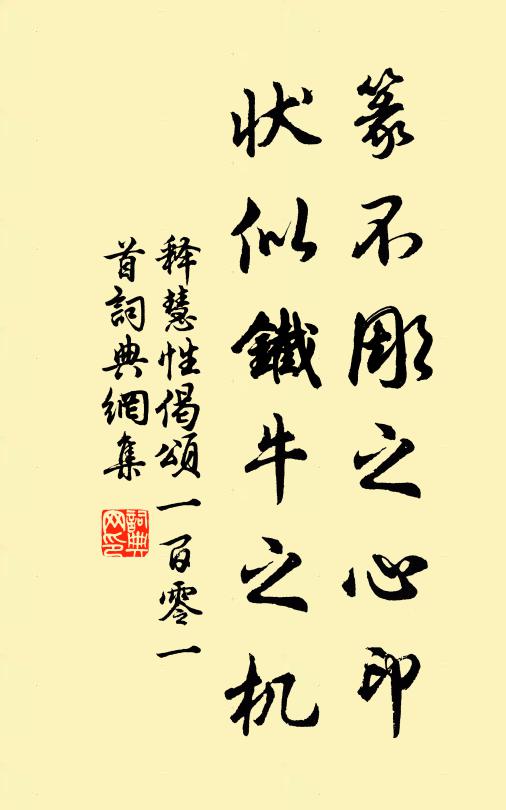 篆不彫之心印
状似鐵牛之机
释慧性偈頌一百零一
首詞典網集
詞典
网印